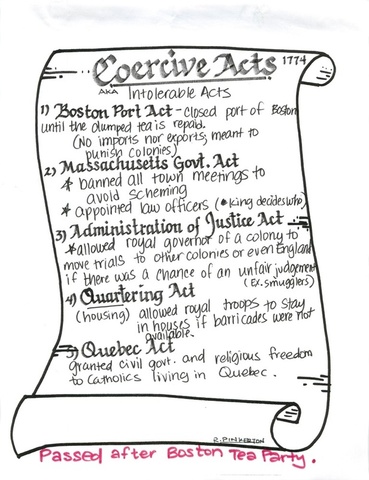 Coercive Acts 1774
AKA Intolerable Acts
1) Boston Port Act - closed port of Boston
until the dumped tea is repaid.
(No imports nor exports; meant to
punish colonies)
2) Massachusetts Govt. Act
* banned all town meetings to
avoid scheming
* appointed law officers (*king decides who)
3) Administration of Justice Act
*allowed royal governor of a colony to
move trials to other colonies or even England
if there was a chance of an unfair judgement
(Ex. smugglers)
4) Quartering Act
(housing) allowed royal troops to stay
in houses if barricades were not
available.
5) Quebec Act
granted civil govt. and religious freedom
to Catholics living in Quebec.
R. PINKERTON
Passed after Boston Tea Party.